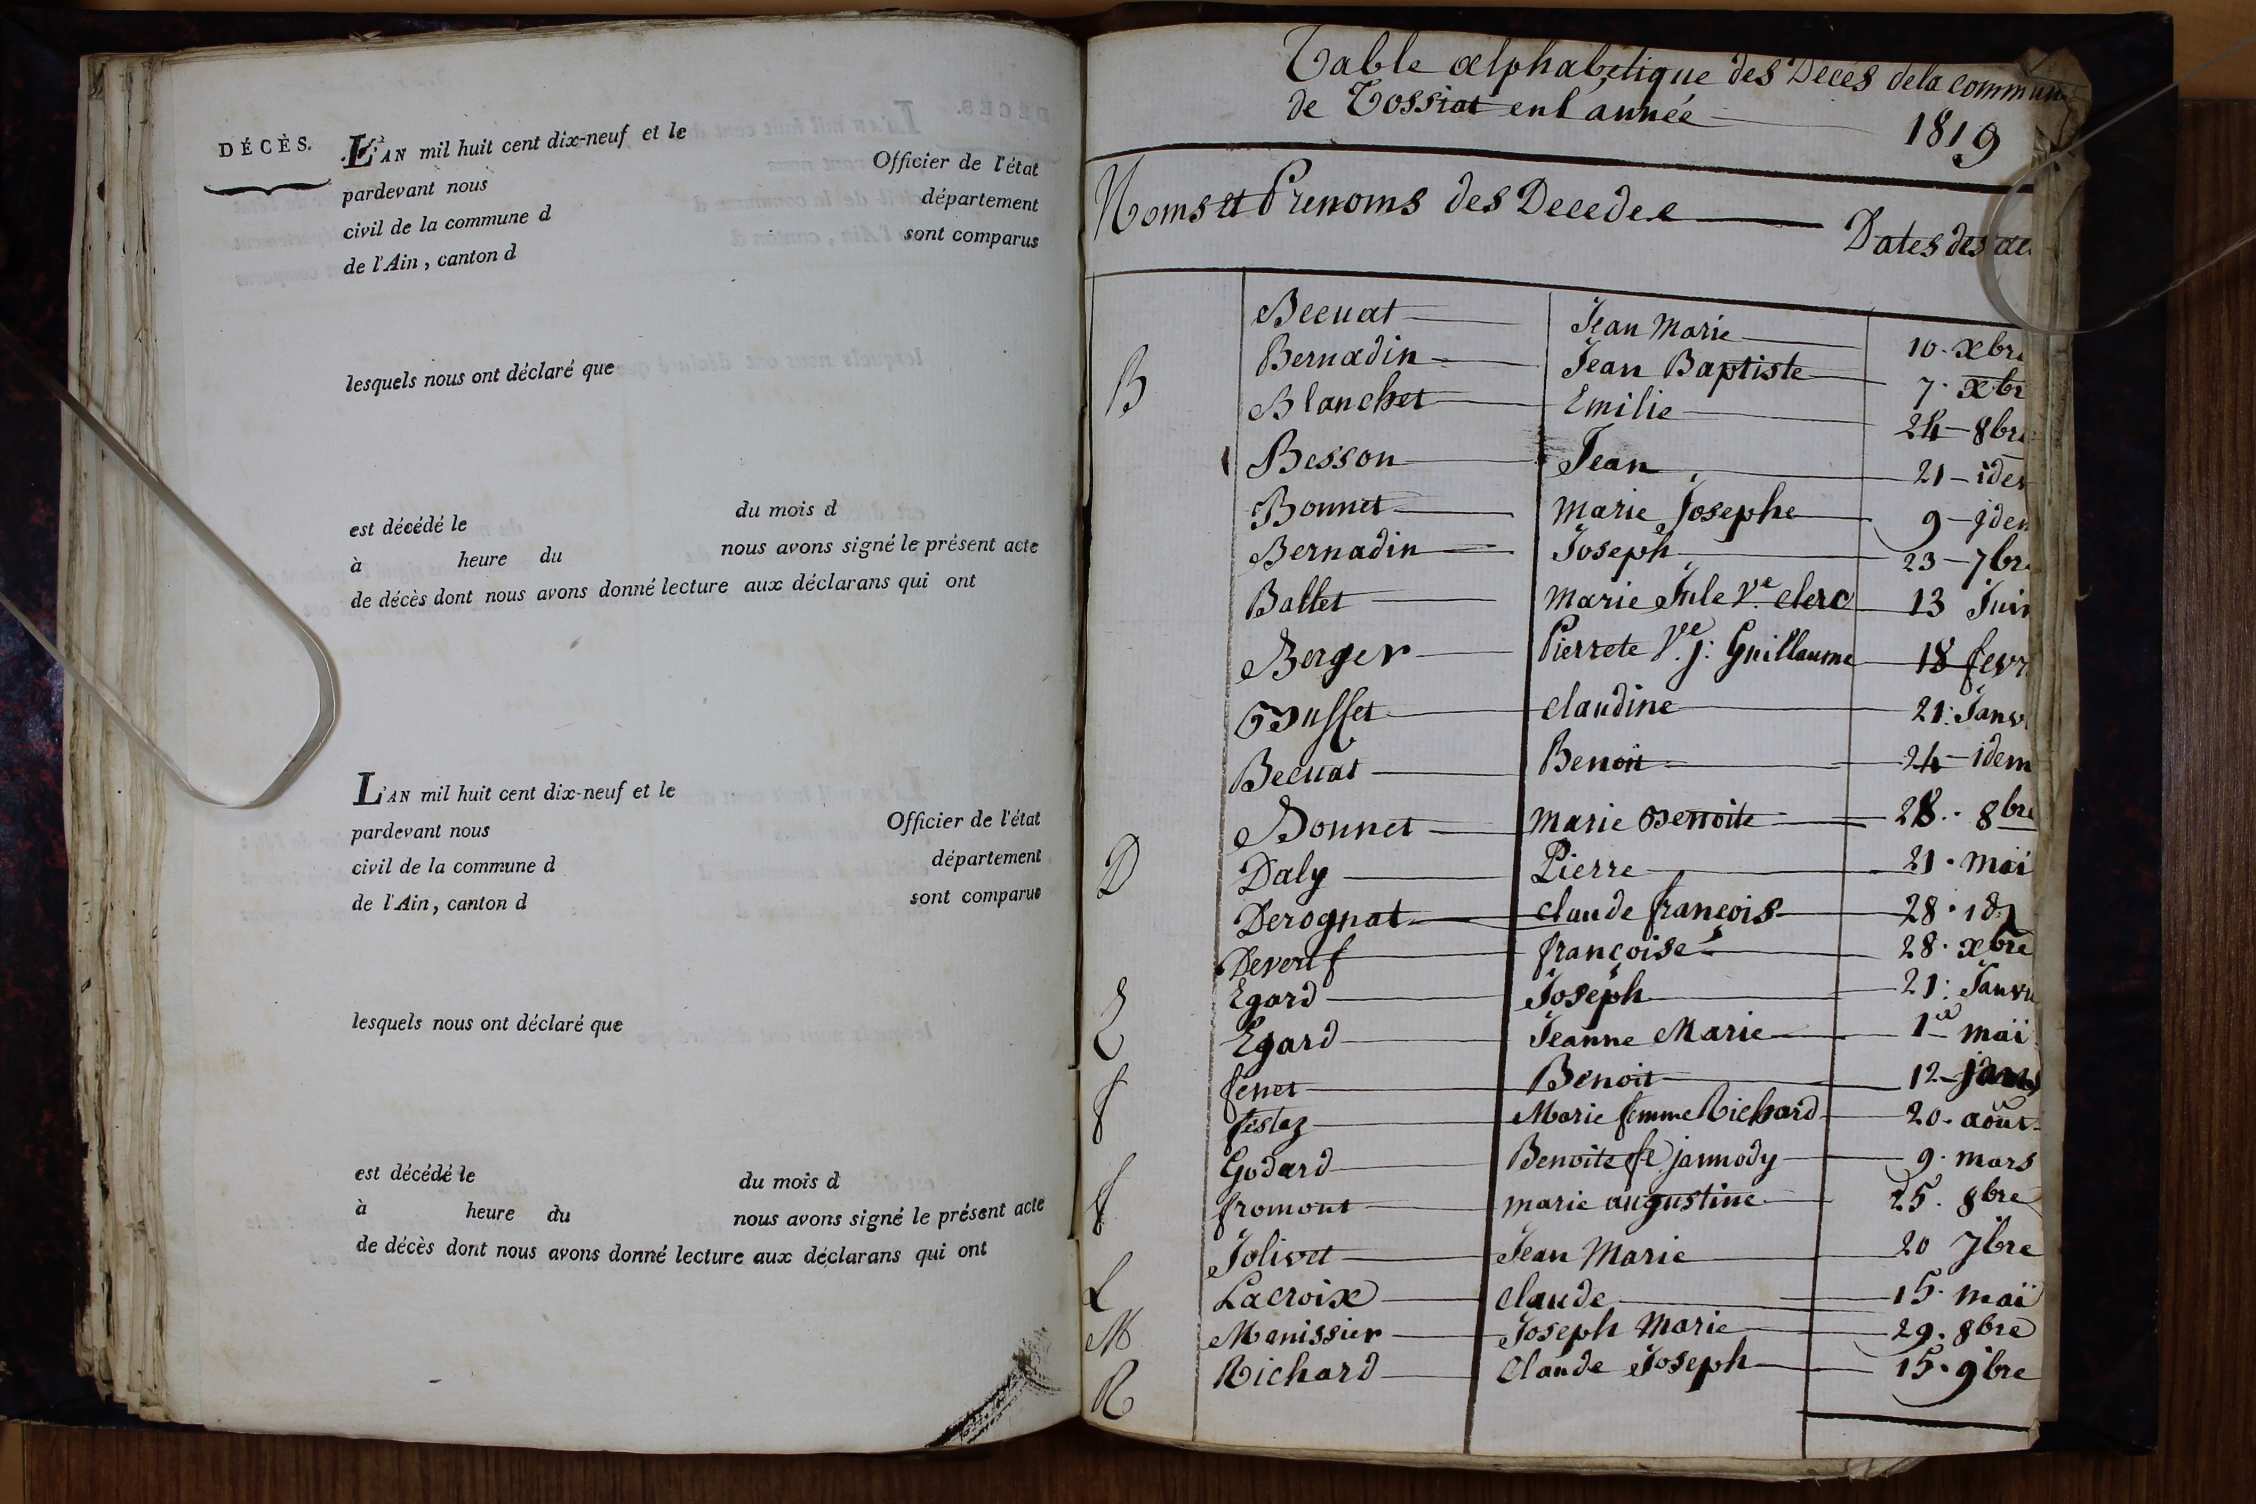 DÉCÈS.
L'AN mil huit cent dix-neuf et le
pardevant nous Officier de l'état
civil de la commune d département
de l'Ain, canton d sont comparus
lesquels nous ont déclaré que
est décédé le du mois d
à heure du nous avons signé le présent acte
de décès dont nous avons donné lecture aux déclarans qui ont
L'AN mil huit cent dix-neuf et le
pardevant nous Officier de l'état
civil de la commune d département
de l'Ain, canton d sont comparus
lesquels nous ont déclaré que
est décédé le du mois d
à heure du nous avons signé le présent acte
de décès dont nous avons donné lecture aux déclarans qui ont
Table alphabetique des Décés de la commun
de Tossiat en l'année 1819
Noms et Prenoms des Decedee Dates des
Becuat Jean Marie 10. xbre
B Bernadin Jean Baptiste 7. xbr
Blanchet Emilie 24 8bre
Besson Jean 21 idem
Bonnet Marie Josephe 9 idem
Bernadin Joseph 23 7bre
Ballet Marie Ve. clerc 13 Juin
Berger Pierrete Ve. j: Guillaume 18 fevr
Buffet claudine 21: Janv
Becuat Benoit 24 idem
Bonnet Marie Benoite 28.. 8bre
D Daly Pierre 21. maï
Derognat claude françois 28. id
Deveuf françoise 28. xbre
E Egard Joseph 21: Janvi
Egard Jeanne Marie 1er maï
f fenet Benoit 12
festaz Marie femme Richard 20. aout
Godard Benoite fe jannody 9. mars
f fromont marie augustine 25. 8bre
Jolivet Jean Marie 20 7bre
L Lacroix claude 15. maï
M Manissier Joseph Marie 29. 8bre
R Richard Claude Joseph 15. 9bre